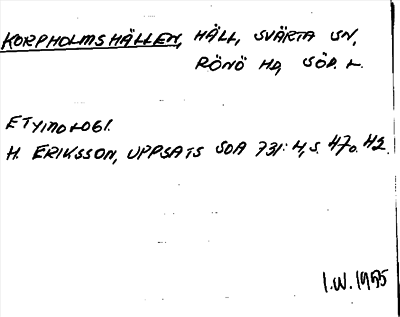 KORPHOLMSHÄLLEN, HÄLL, SVÄRTA SN,
RÖNÖ HD, SÖD. L.
ETYMOLOGI.
H. ERIKSSON, UPPSATS SOA 731: 4, S. 47 o. 42.
I.W. 1955